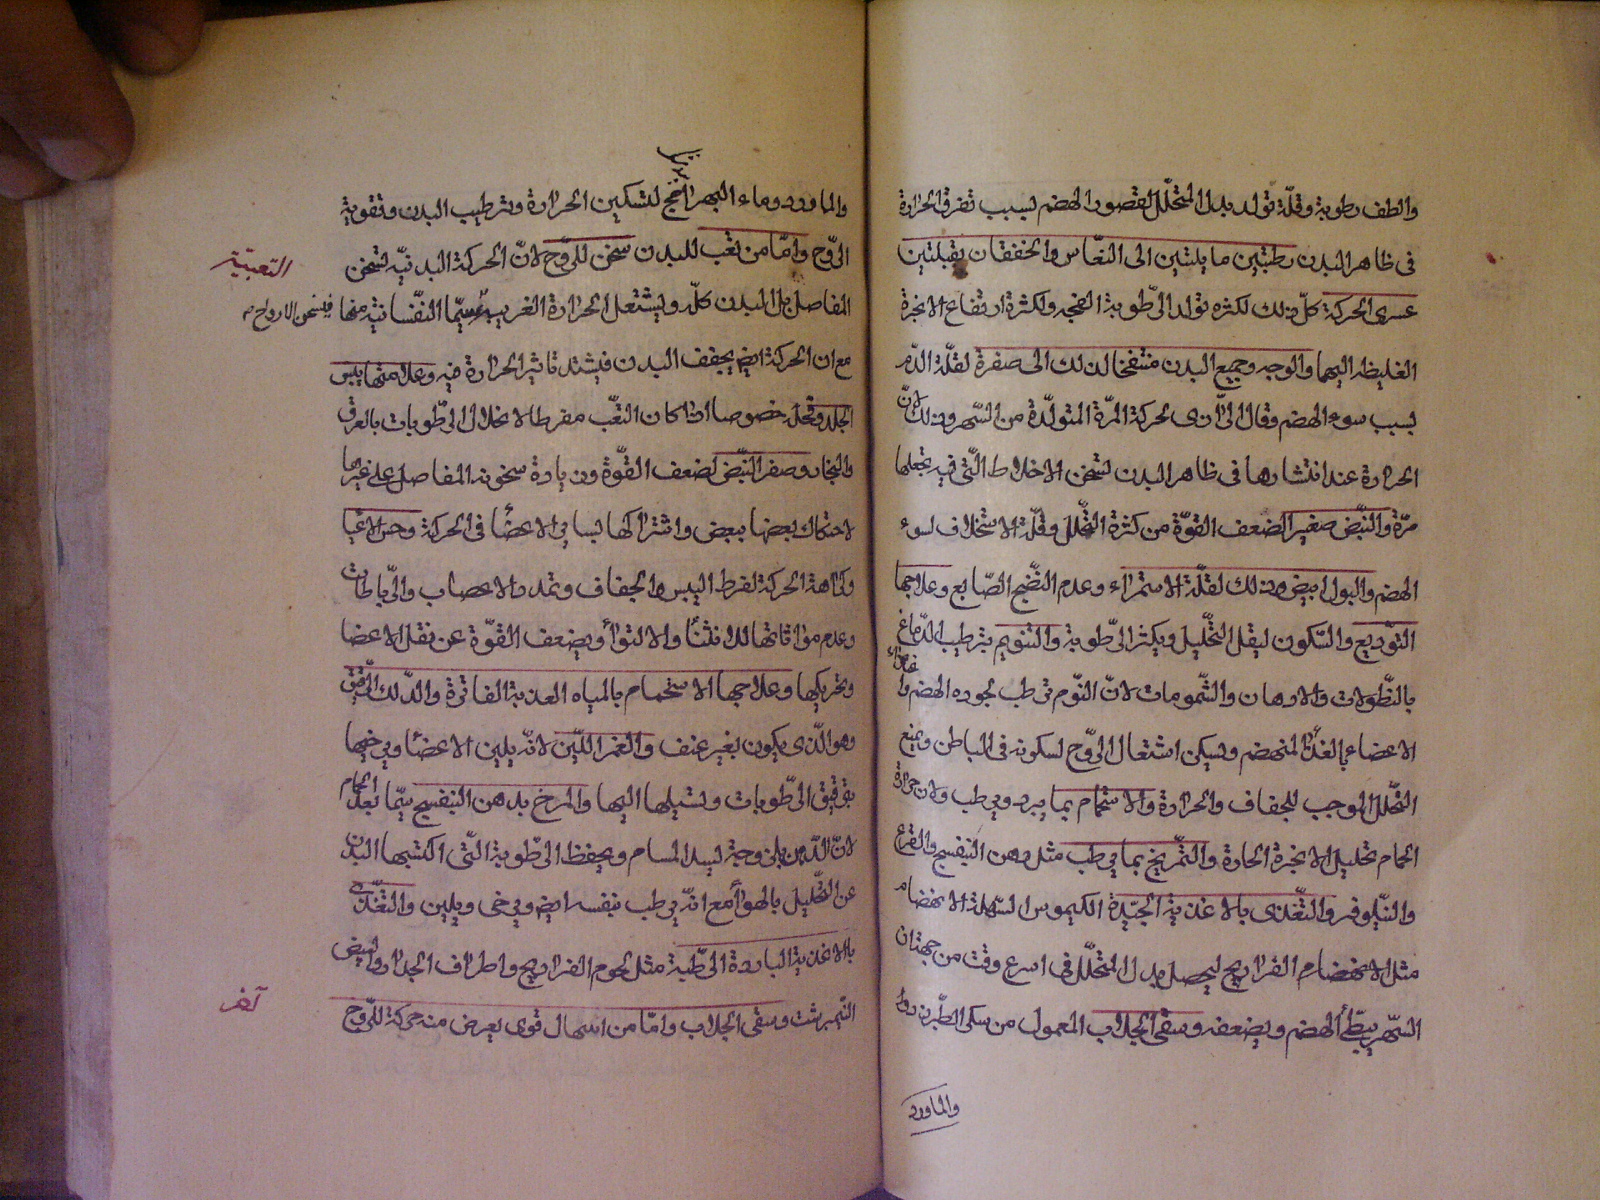 والطف رطوبة وقلّة تولد بدل المتحلّل لقصور الهضم بسبب تفرق الحرارة
فى ظاهر البدن رطبتين مايلتين الى النعاس والخفقان ثقيلتين
عسرى الحركة كلّ ذلك لكثرة تولد الرّطوبة الفجه ولكثرة ارتفاع الابخرة
الغليظه اليهما والوجه وجميع البدن منتفخا لذلك الى صفرة لقلّة الدّم
بسبب سوء الهضم وقال الرّازى لحركة المرّة المتولّدة من السّهر وذلك لانّ
الحرارة عند انتشارها فى ظاهر البدن تسخن الاخلاط الّتى فيه تجعلها
مرّة والنّبض صغير الضعف القوّة من كثرة التحّلل وقلّة الاستخلاف لسوء
الهضم والبول ابيض وذلك لقلّة الاستمراء وعدم النّضج الصّابغ وعلاجها
التوّديع والسّكون ليقل التحّليل ويكثر الرّطوبة والتنويم بترطيب الدّماغ
بالنّطولات والادهان والشّمومات لانّ النوّم يرطب بجوده الهضم
الاعضاء بالغذاء المنهضم ويسكن اشتعال الرّوح لسكونه فى الباطن ويمنع
التحّلل الموجب للجفاف والحرارة والاستحمام بما يبرد ويرطب ولان حرارة
الحمام تحليل الابخرة الحارة والتمّريخ بما يرطب مثل دهن البنفسج والقرع
والنيّلوفر والتغّذى بالاغذية الجيّدة الكيموس السّهلة الانهضام
مثل الانهضام الفراريج ليحصل بدل المتحلّل فى اسرع وقت من جهتان
السّهر يبطئ الهضم ويضعفه وسقى الجلاب المعمول من سكر الطّبرزد
والماورد
والماورد وماء البهرامج لتسكين الحرارة وترطيب البدن وتقوية
الروّح وامّا من تعب للبدن سخن للروّح لانّ الحركة البدنيّه تسخن
التعبيّة
المفاصل بل البدن كلّه ويشتعل الحرارة الغريبة سيّما النفّسانية منها فيسخن الارواح
مع ان الحركة ايض يجفف البدن فيشتد تاثير الحرارة فيه وعلامتها يبس
الجلد وقحله خصوصا اذا كان التعّب مفرطا لانحلال الرّطوبات بالعرق
والبخار وصغر النّبض لضعف القوّة وزيادة سخونة المفاصل على غيرها
لاحتكاك بعضها ببعض واشتراكها لسائر الاعضا فى الحركة وحس الاعيا
وكراهة الحركة لفرط اليبس والجفاف وتمدد الاعصاب والرّباطات
وعدم مؤاتاتها للانثنا والالتوا ويضعف القوّة عن نقل الاعضا
وتحريكها وعلاجها الاستحمام بالمياه العذبة الفاترة والدّلك الرّقيق
وهو الّذى يكون بغير عنف والغمز اللّين لانّه يلين الاعضا ويرخيها
بترقيق الرّطوبات وتسيلها اليها والمرخ بدهن البنفسج سيّما بعد الحمام
لانّ الدّهن بلزوجته يسد المسام ويحفظ الرّطوبة الّتى اكتسبها البدن
عن التحّليل بالهوا مع انّه يرطب بنفسه ايض ويرخى ويلين والتغّذى
بالاغذية الباردة الرّطبة مثل لحوم الفراريج واطراف الجدا والبيض
النّيمبرشت وسقى الجلاب وامّا من اسهال قوى يعرض منه حركة للروّح